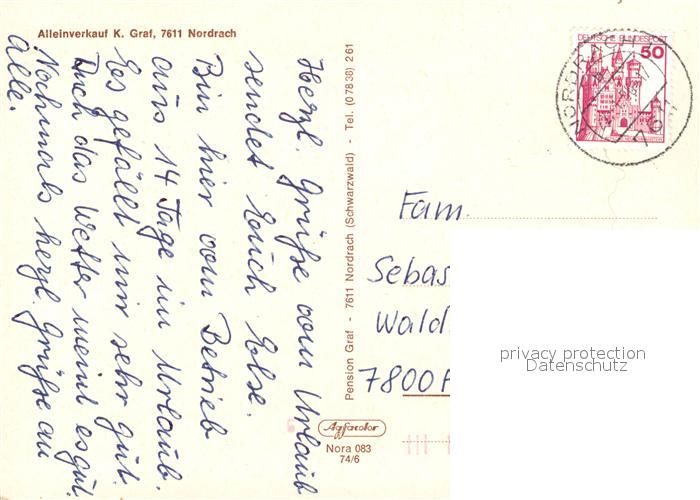 Alleinverkauf K. Graf, 7611 Nordrach
Herzl. Grüße vom Urlaub
sendet Euch Else.
Bin hier vom Betrieb
aus 14 Tage im Urlaub.
Es gefällt mir sehr gut.
Auch das Wetter meint es gut.
Nochmals herzl. Grüße an
alle.
Pension Graf - 7611 Nordrach (Schwarzwald) - Tel. (0 78 38) 2 61
DEUTSCHE BUNDESPOST
50
NORDRACH
7611
Fam.
Sebas
Wald
7800 F
privacy protection
Datenschutz
Agfacolor
Nora 083
74/6